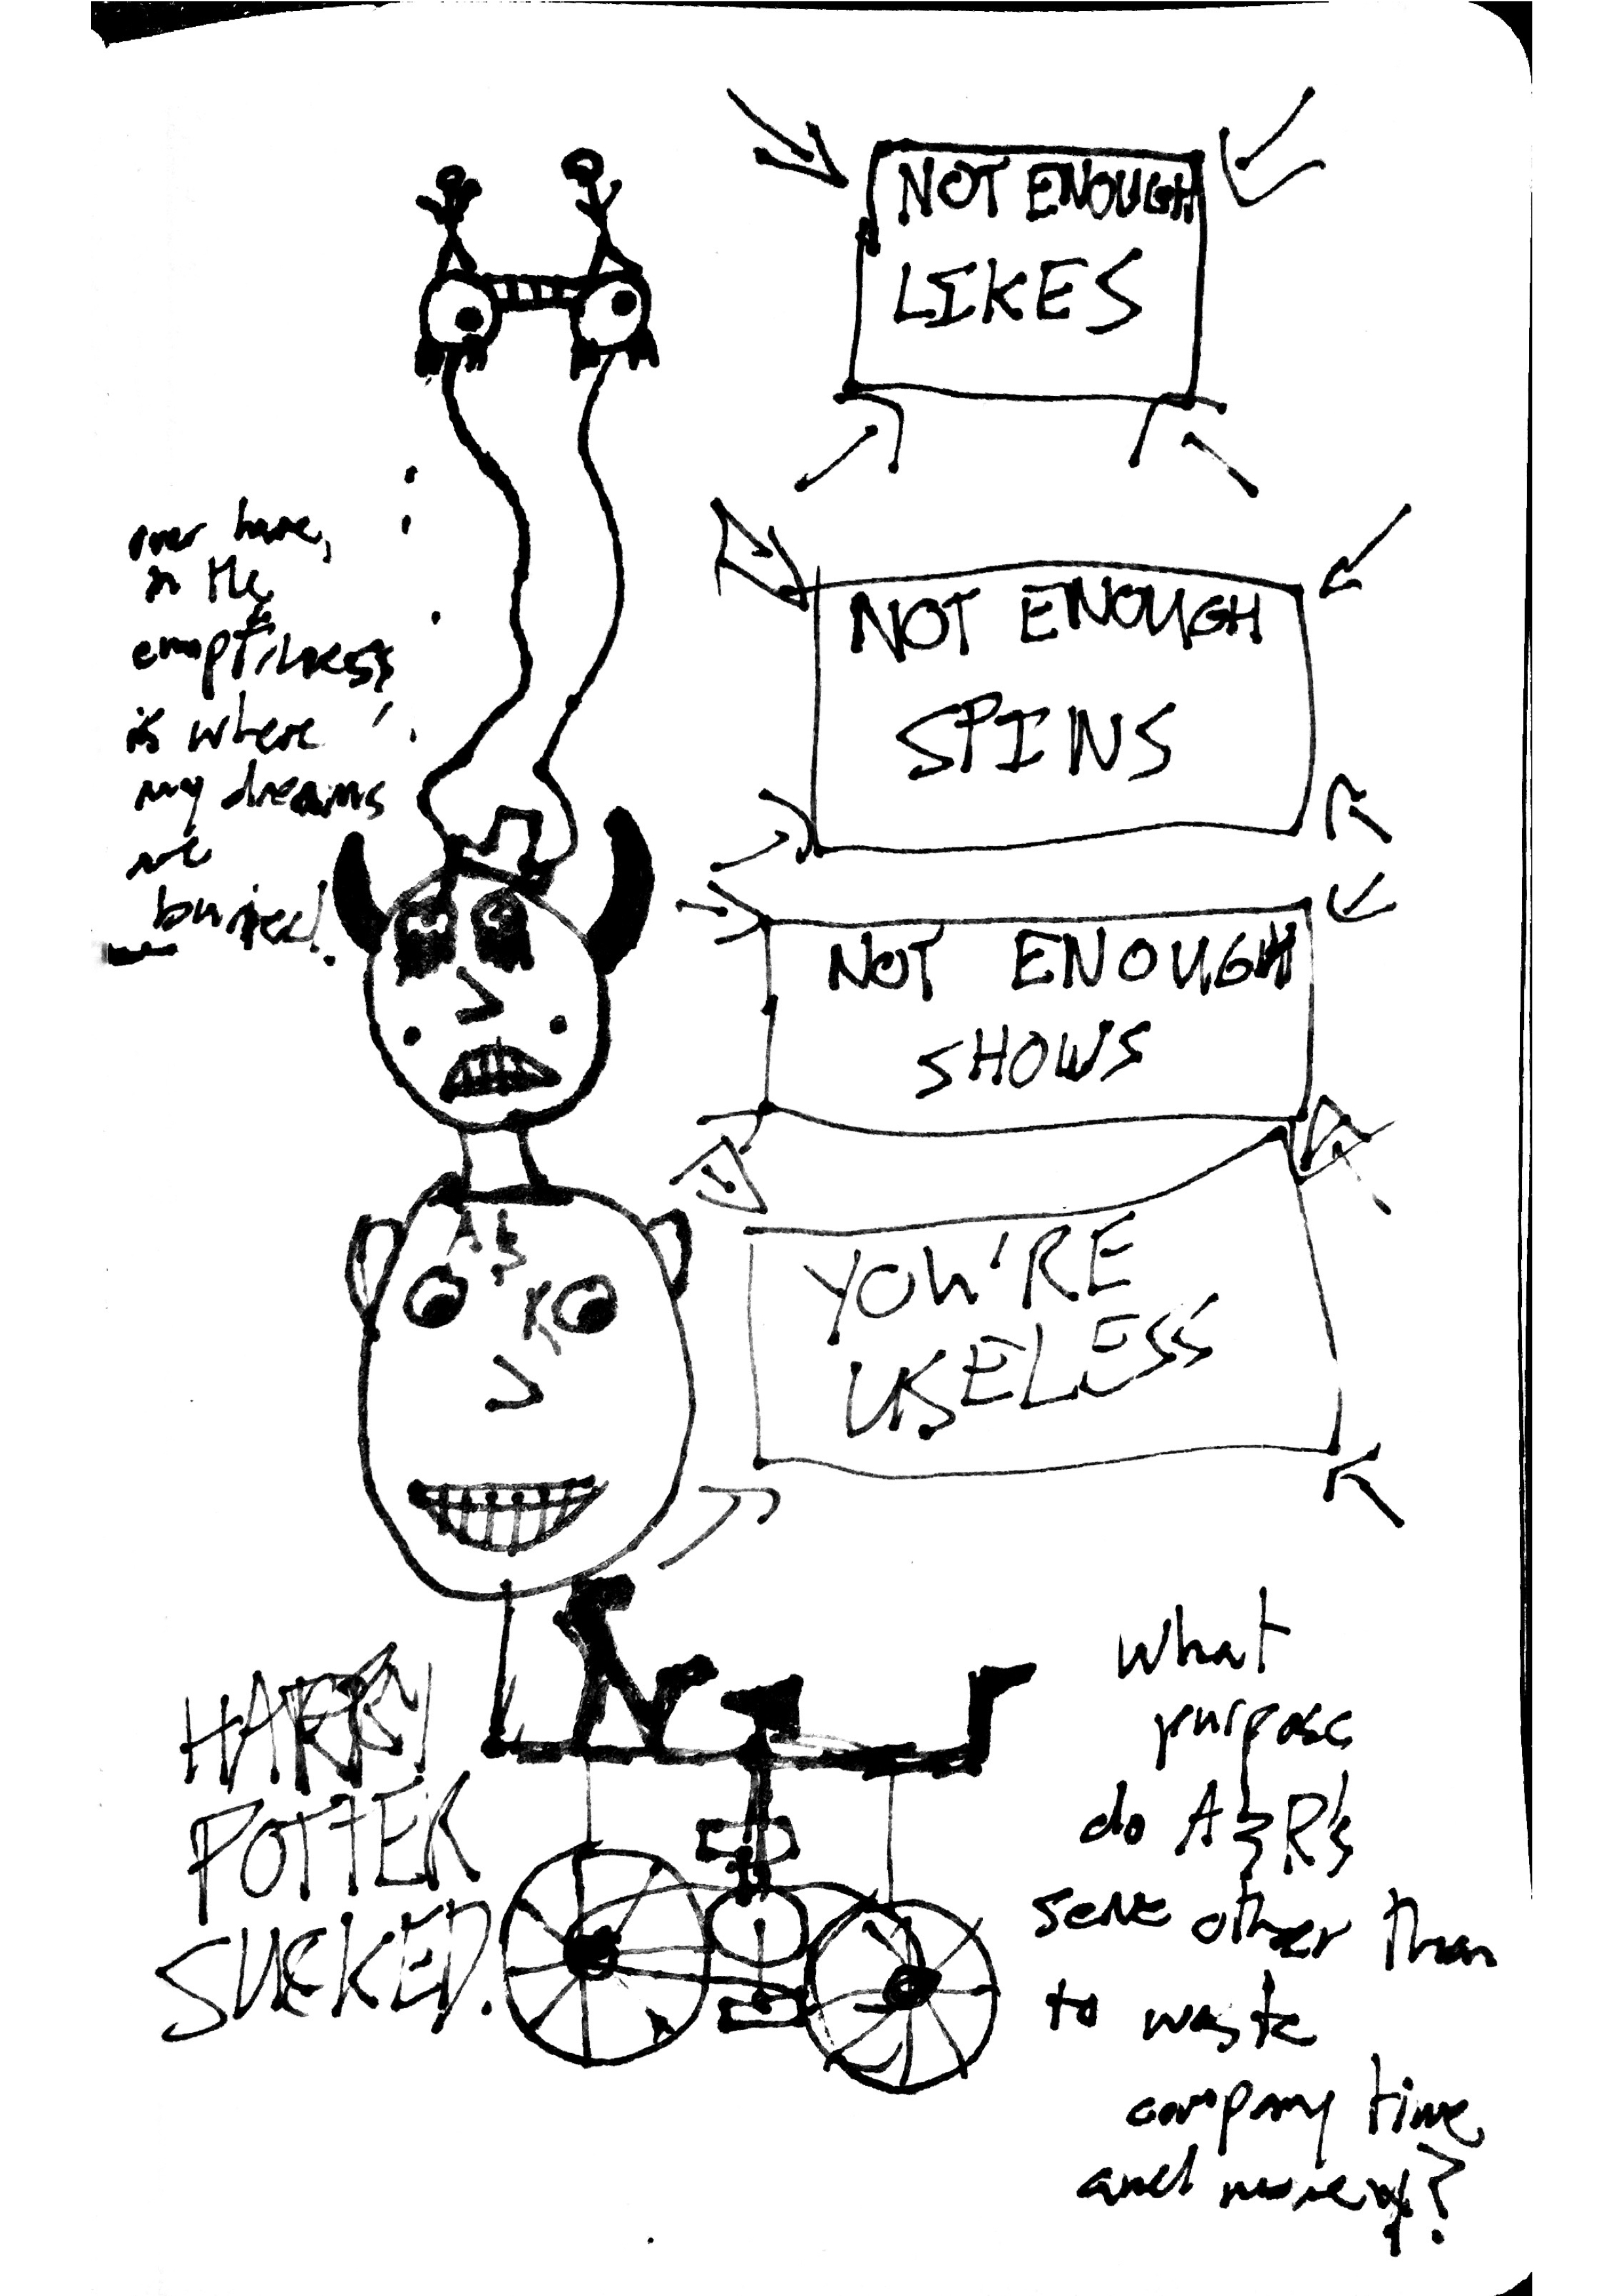 NOT ENOUGH
LIKES
over here,
in the
emptiness
is where
my dreams
are
buried.
NOT ENOUGH
SPINS
NOT ENOUGH
SHOWS
A &
R
YOU'RE
USELESS
HARRY
POTTER
SUCKED.
what
purpose
do A&R's
serve other than
to waste
company time
and money?